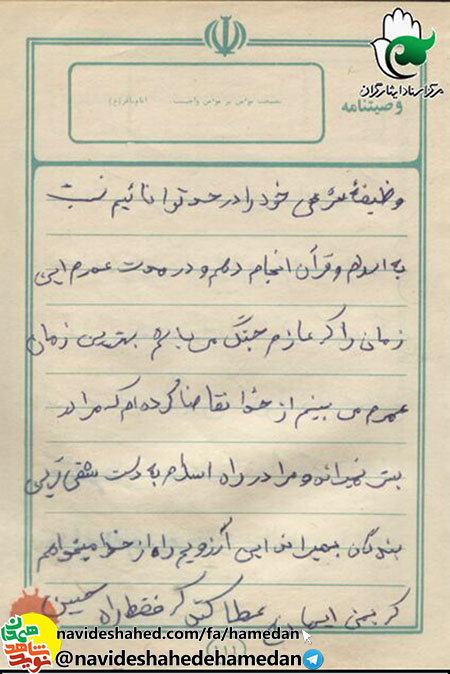 مرکز اسناد ایثارگران
وصیتنامه
وظیفهٔ شرعی خود را در حد توانائیم نسبت
به اسلام و قرآن انجام دهم و در مدت عمرم این
زمانی را که عازم جنگ می باشم بهترین زمان
عمرم می بینم از خدا تقاضا کرده ام که مرا در
بستر نمیراند و مرا در راه اسلام به دست شقی ترین
بندگان بمیراند این آرزویم را از خدا میخواهم
که بمن عطا کند که فقط راه حسین
نوید شاهد همدان
navideshahed.com/fa/hamedan
@navideshahedehamedan